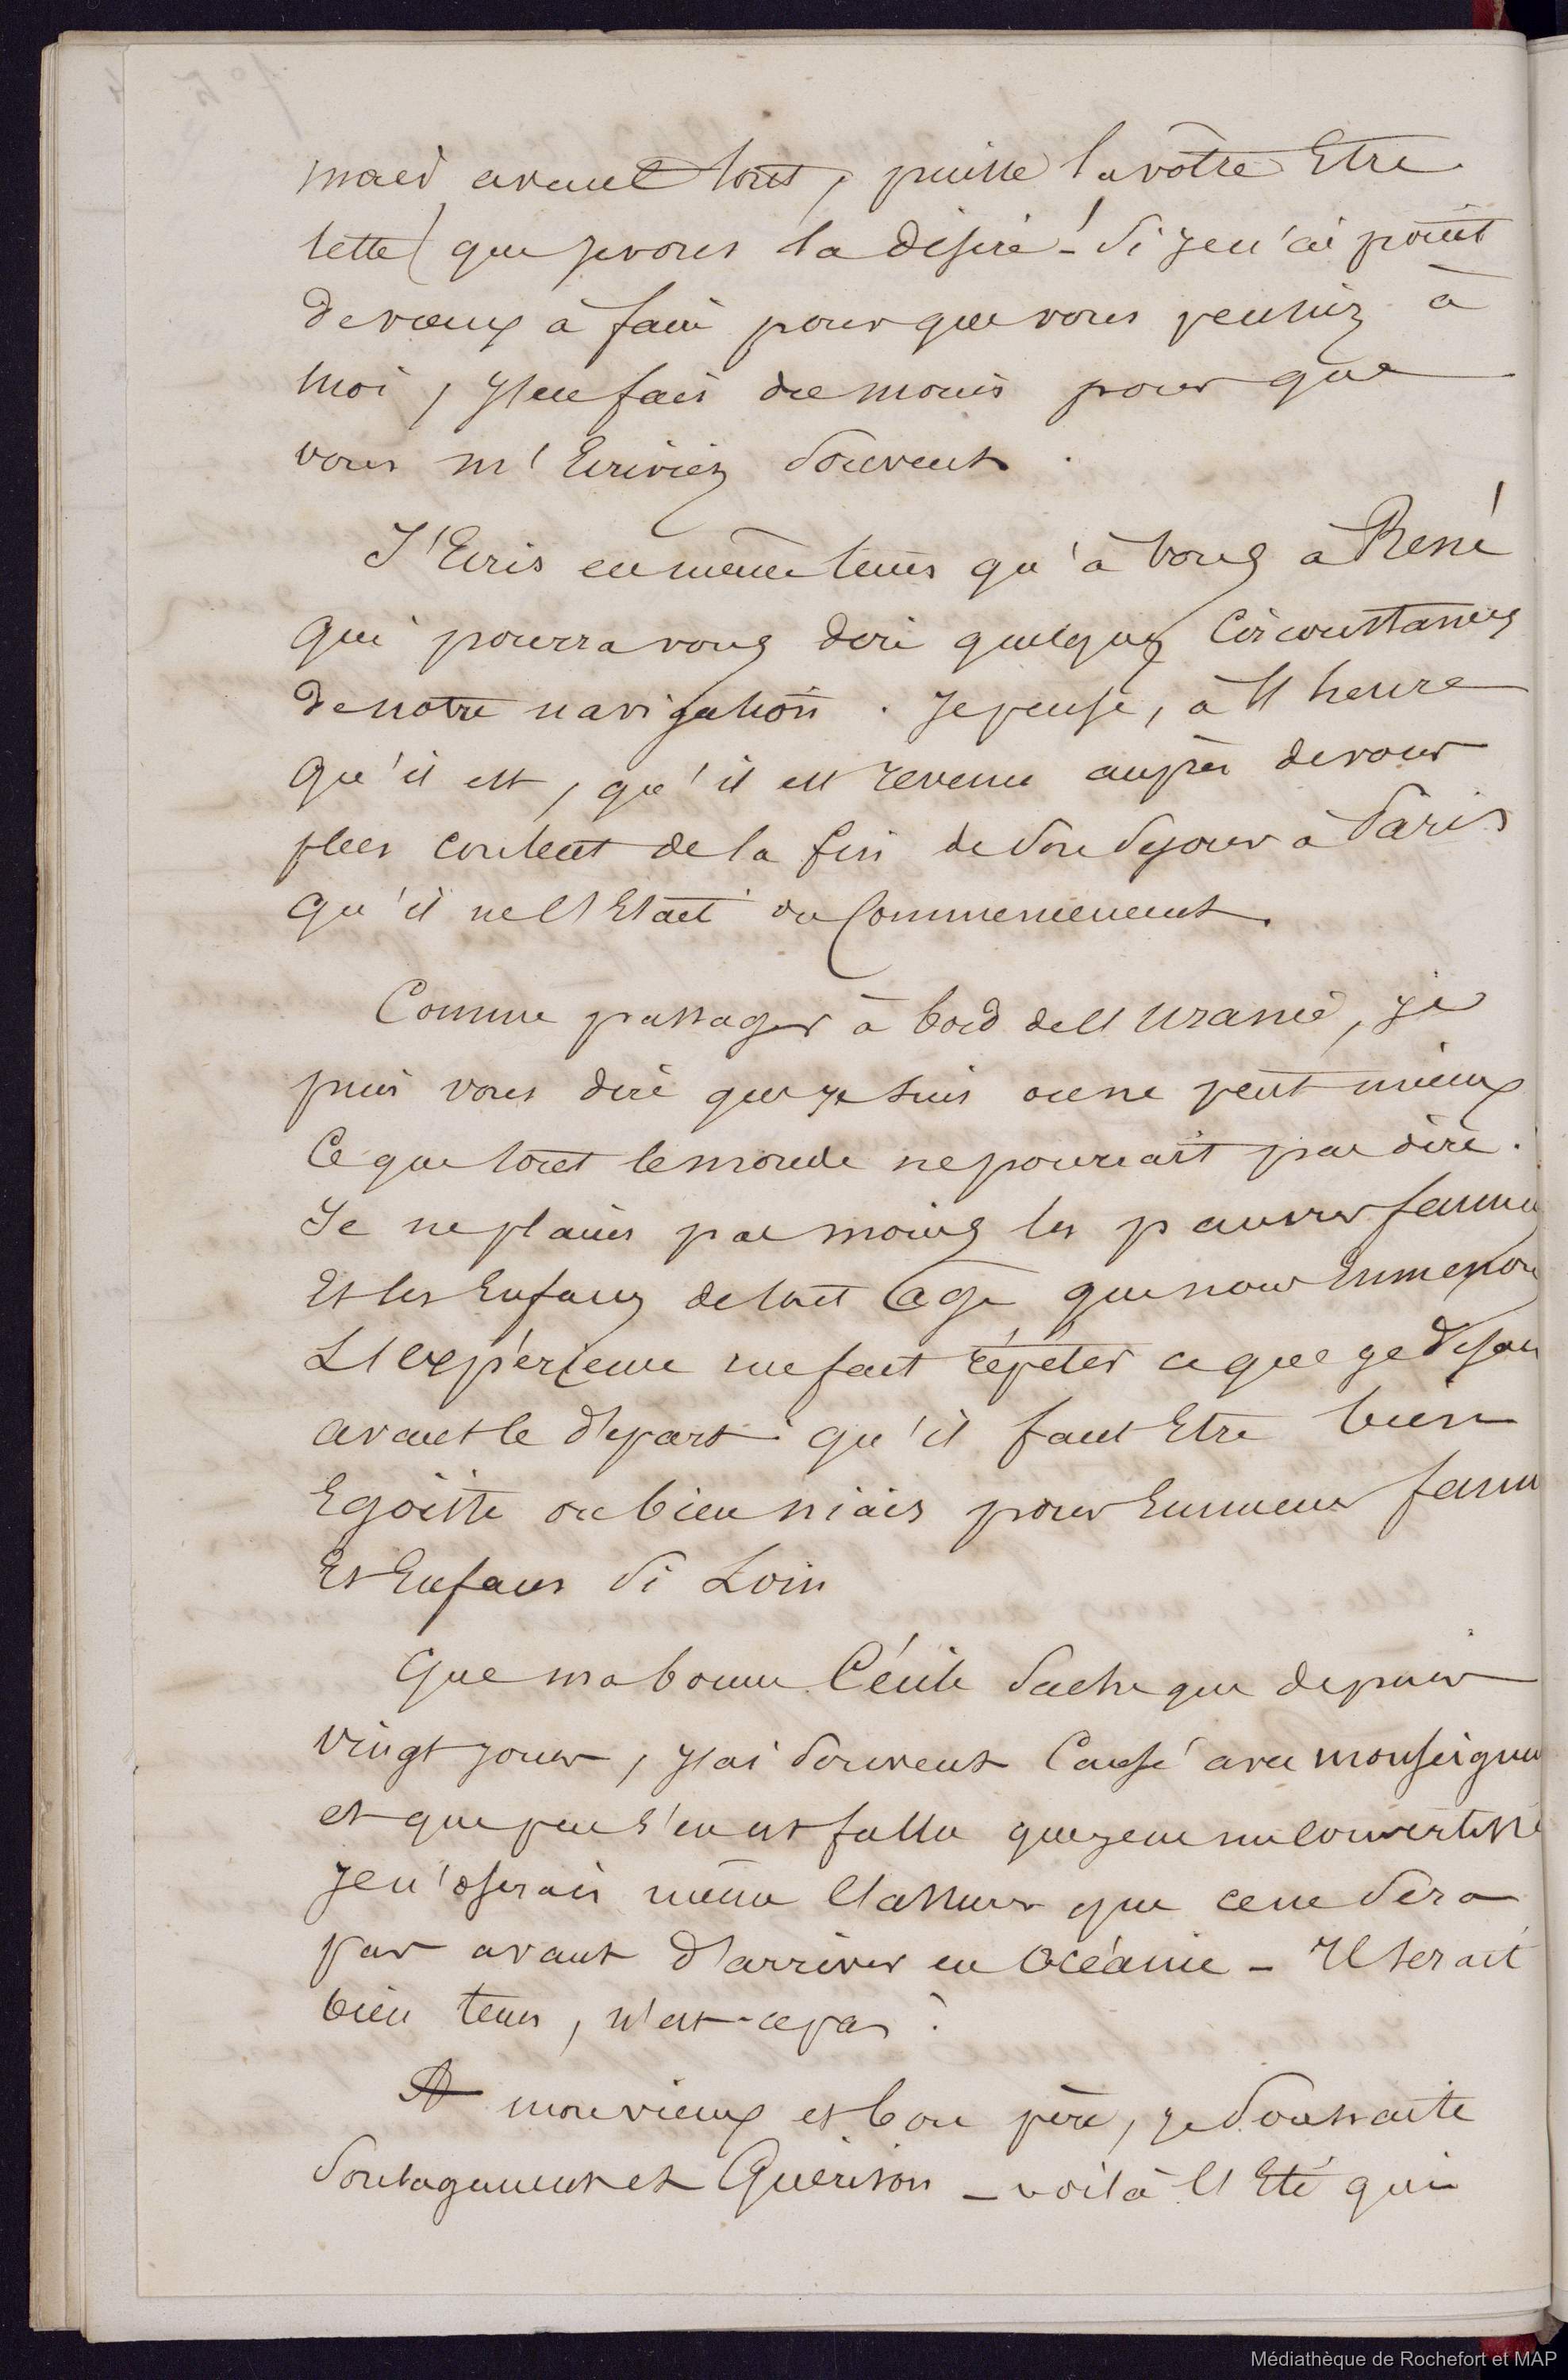 mais avant tout, puisse la votre Etre
telle que je vous la désire - Si je n'ai point
de vœux à faire pour que vous pensiez à
moi, j'en fais du moins pour que
vous m'Ecriviez souvent.
J'Ecris en même tems qu'à vous à René
qui pourra vous dire quelques Circonstances
de notre navigation. Je pense, à l'heure
qu'il est, qu'il est revenu auprès de vous
plus content de la fin de son séjour à Paris
qu'il ne l'Etait au Commencement.
Comme passager à bord de l'Uranie, je
puis vous dire que je suis on ne peut mieux
Ce que tout le monde ne pourrait pas dire.
Je ne plains pas moins les pauvres femmes
Et les Enfans de tout âge que nous Emmenons
L'expérience me fait répéter ce que je disais
avant le départ qu'il faut Etre bien
Egoïste ou bien niais pour Emmener femme
Et Enfans si Loin
Que ma bonne Cécile Sache que depuis
vingt jours, j'ai souvent Causé avec monseigneur
et que peu s'en est fallu que je ne me convertisse
Je n'oserais même l'assurer que ce ne sera
pas avant d'arriver en Océanie - Il serait
bien tems, n'est-ce pas ?
A mon vieux et bon père, je souhaite
Soulagement et Guérison - voilà l'Eté qui
Médiathèque de Rochefort et MAP